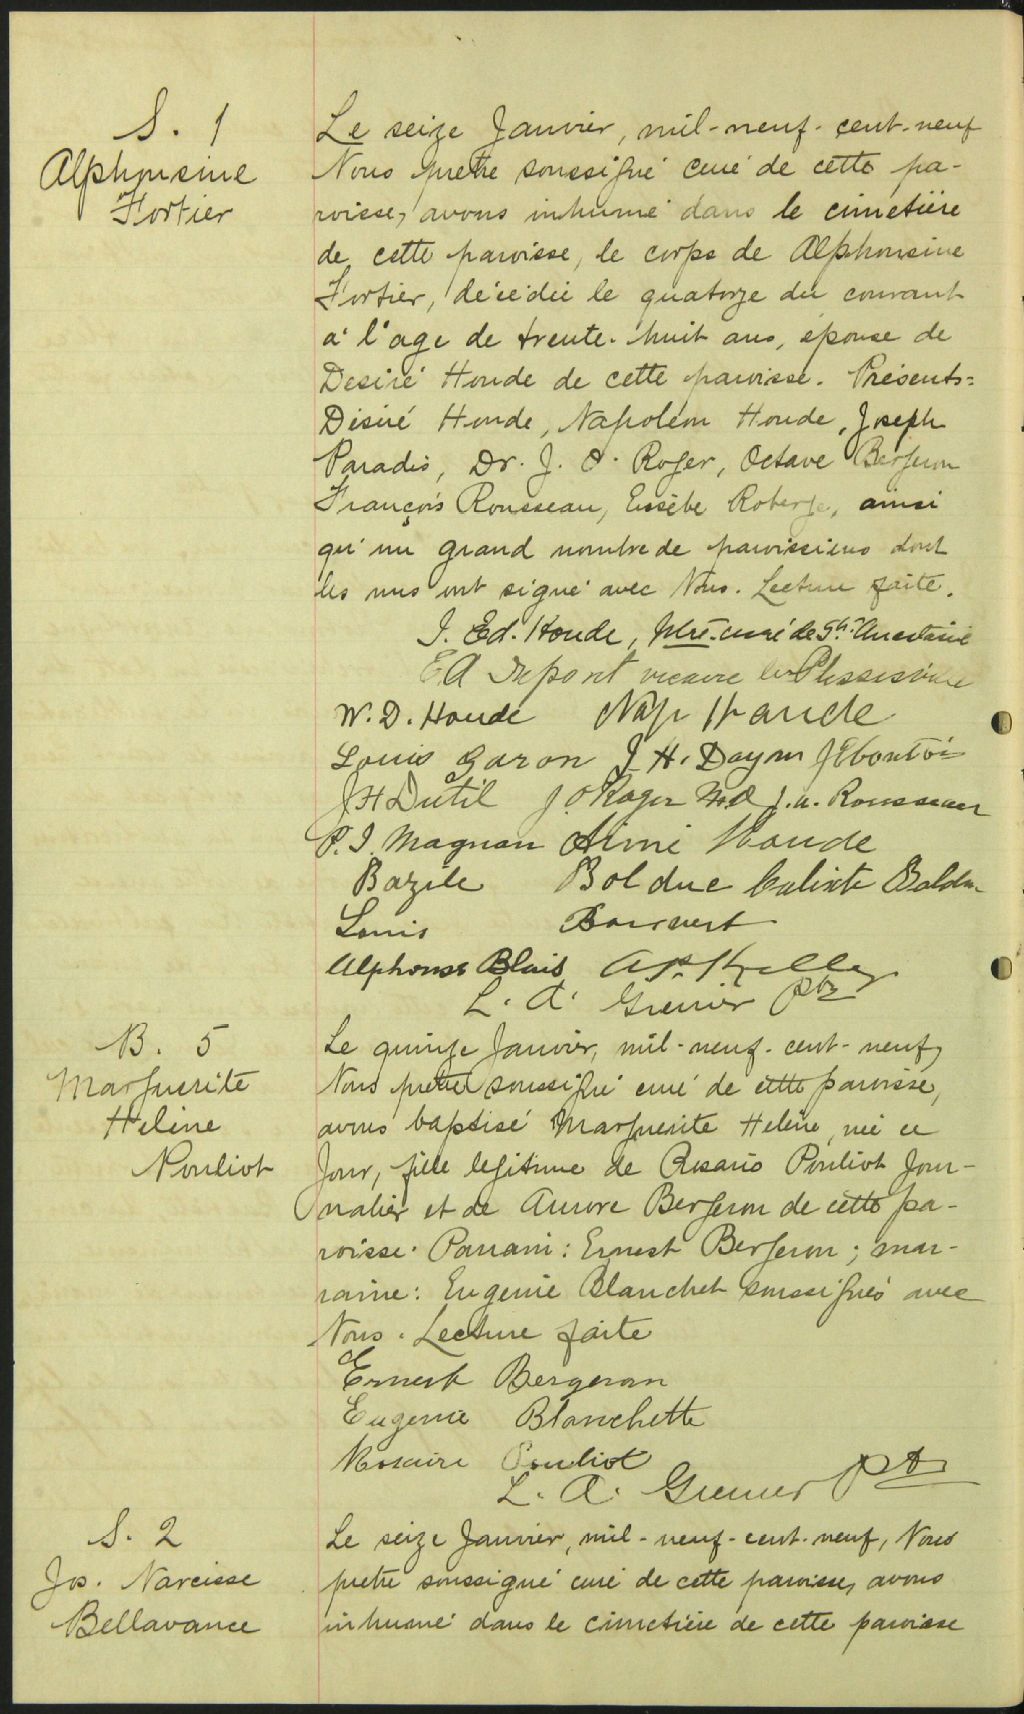 S. 1
Alphonsine
Fortier
Le seize Janvier, mil-neuf-cent-neuf
Nous prêtre soussigné curé de cette pa-
roisse, avons inhumé dans le cimetière
de cette paroisse, le corps de Alphonsine
Fortier, décédée le quatorze du courant
à l'age de trente-huit ans, épouse de
Desiré Houde de cette paroisse. Présents:
Désiré Houde, Napoléon Houde, Joseph
Paradis, Dr. J. O. Roger, Octave Bergeron
François Rousseau, Eusèbe Roberge, ainsi
qu'un grand nombre de paroissiens dont
les uns ont signé avec Nous. Lecture faite.
J. Ed. Houde, ptre. curé de Ste. Anastasie
E A Dupont vicaire Plessisville
W. D. Houde Nap Houde
Louis Garon J H.
J H Dutil J. O Roger M.D J. A. Rousseau
P. J. Magnan Aimé Houde
Bazile Bolduc Calixte Bolduc
Louis Boisvert
Alphonse Blais A. P. Kelly
L. A. Grenier Ptr
B. 5
Marguerite
Helène
Pouliot
Le quinze Janvier, mil-neuf-cent-neuf,
Nous pretre soussigné curé de cette paroisse,
avons baptisé Marguerite Helène, née ce
Jour, fille legitime de Rosario Pouliot Jour-
nalier et de Aurore Bergeron de cette pa-
roisse. Parrain: Ernest Bergeron; mar-
raine: Eugenie Blanchet soussignés avec
Nous. Lecture faite
Ernest Bergeron
Eugenie Blanchette
Rosaire Pouliot
L. A. Grenier Ptr
S. 2
Jos. Narcisse
Bellavance
Le seize Janvier, mil-neuf-cent-neuf, Nous
pretre soussigné curé de cette paroisse, avons
inhumé dans le cimetière de cette paroisse